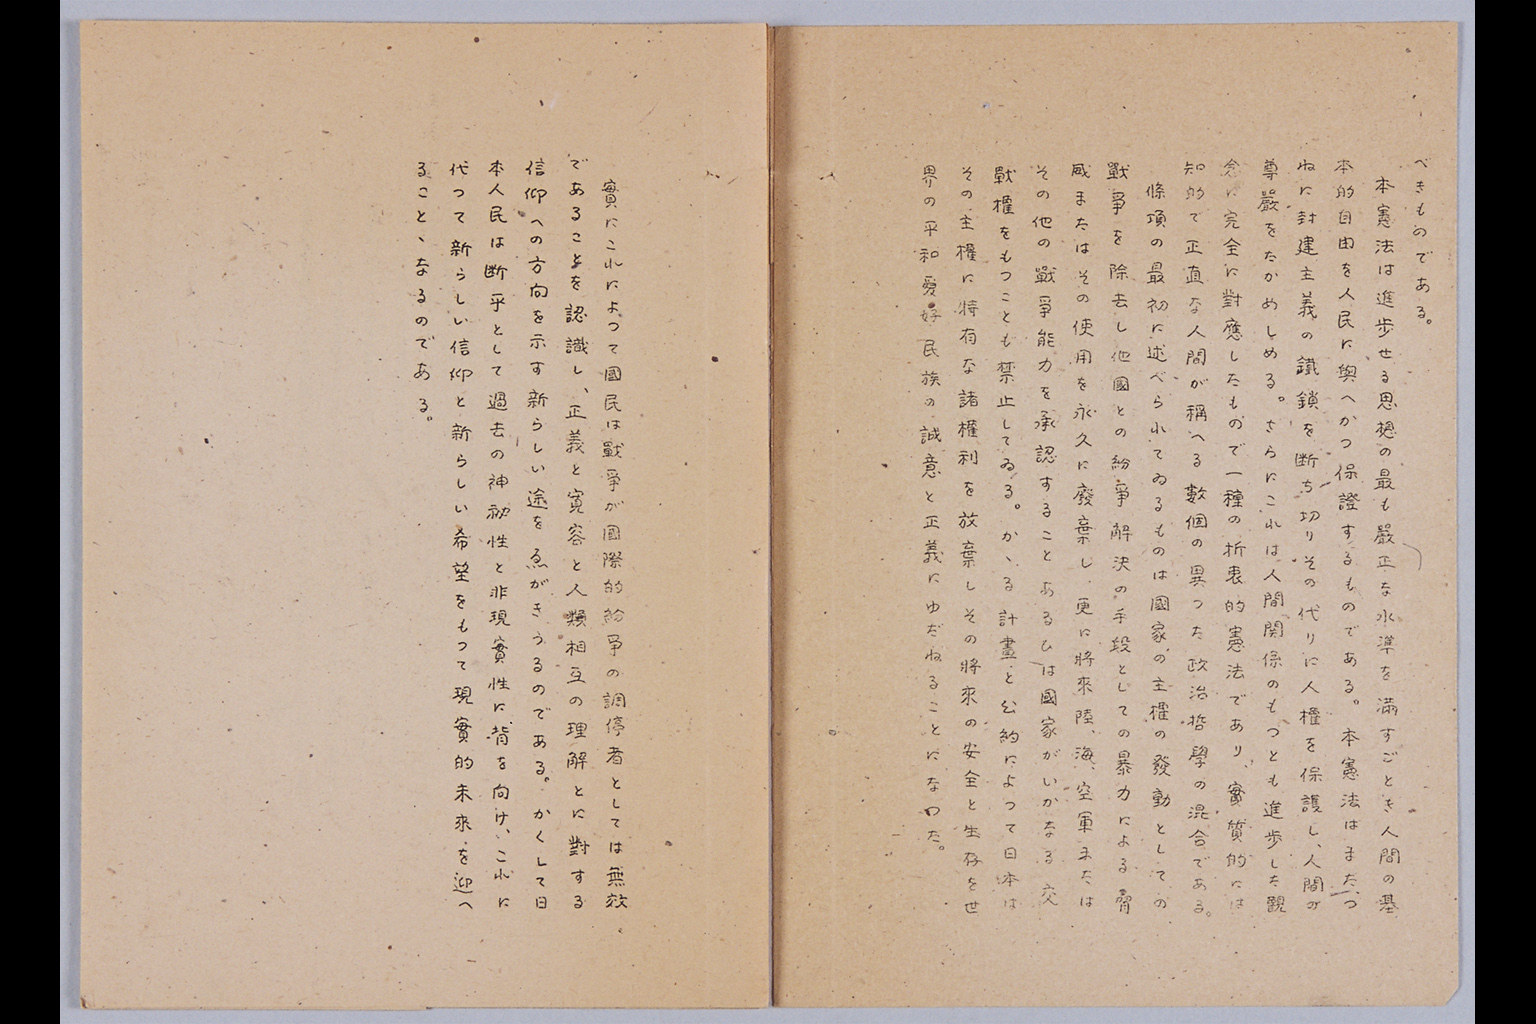 べきものである。
本憲法は進歩せる思想の最も嚴正な水準を満すごとき人間の基
本的自由を人民に與へかつ保證するものである。本憲法はまたつ
ねに封建主義の鐵鎖を断ち切りその代りに人權を保護し、人間の
尊嚴をたかめしめる。さらにこれは人間関係のもつとも進歩した觀
念に完全に對應したもので一種の折衷的憲法であり、實質的には
知的で正直な人間が稱へる數個の異つた政治哲學の混合である。
條項の最初に述べられてゐるものは國家の主權の發動としての
戰爭を除去し他國との紛爭解決の手段としての暴力による脅
威またはその使用を永久に廢棄し、更に將來陸、海、空軍または
その他の戰爭能力を承認することあるひは國家がいかなる交
戰權をもつことも禁止してゐる。かゝる計畫と公約によつて日本は
その主權に特有な諸權利を放棄しその將來の安全と生存を世
界の平和愛好民族の誠意と正義にゆだねることになつた。
實にこれによつて國民は戰爭が國際的紛爭の調停者としては無效
であることを認識し、正義と寛容と人類相互の理解とに對する
信仰への方向を示す新らしい途をゑがきうるのである。かくして日
本人民は断乎として過去の神祕性と非現實性に背を向け、これに
代つて新らしい信仰と新らしい希望をもつて現實的未來を迎へ
ること、なるのである。